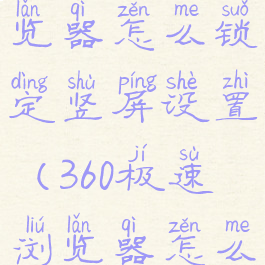 lǎn qì zěn me suǒ
览器怎么锁
dìng shù píng shè zhì
定竖屏设置
jí sù
(360极速
liú lǎn qì zěn me
浏览器怎么